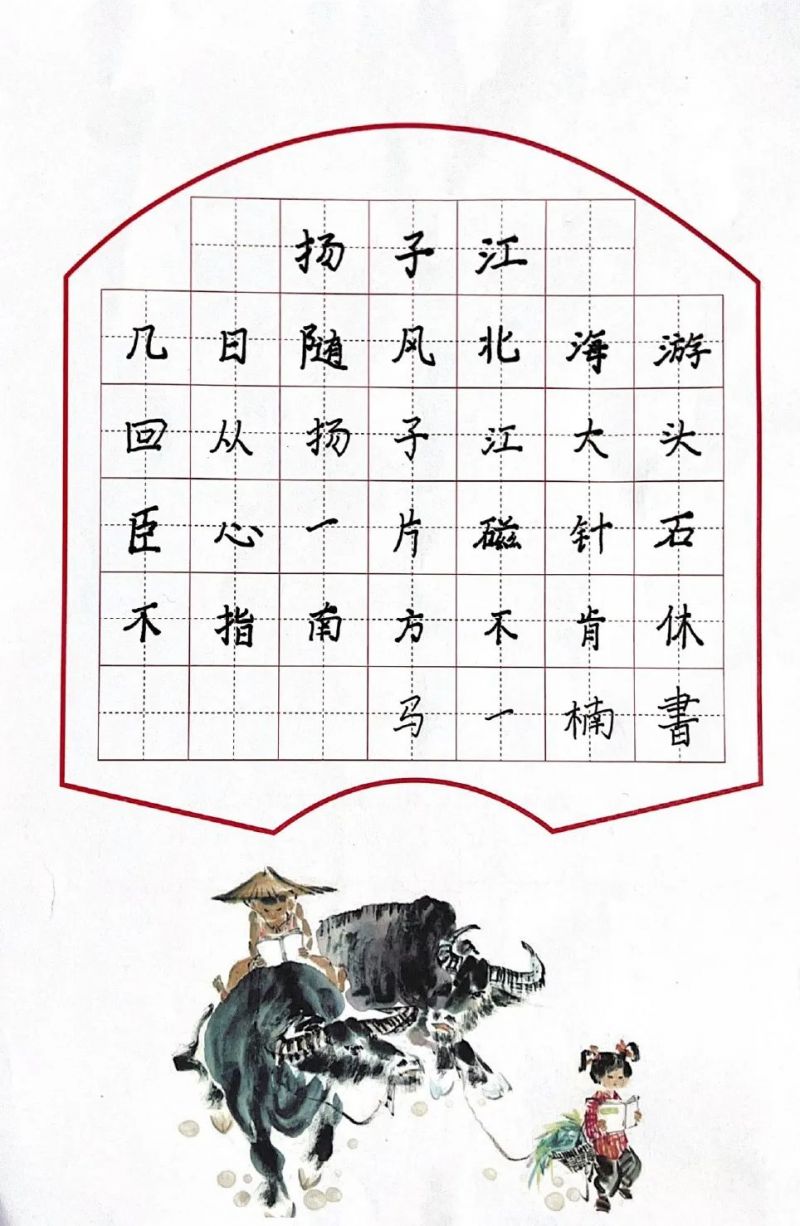 扬子江
几日随风北海游
回从扬子江大头
臣心一片磁针石
不指南方不肯休
马一楠書